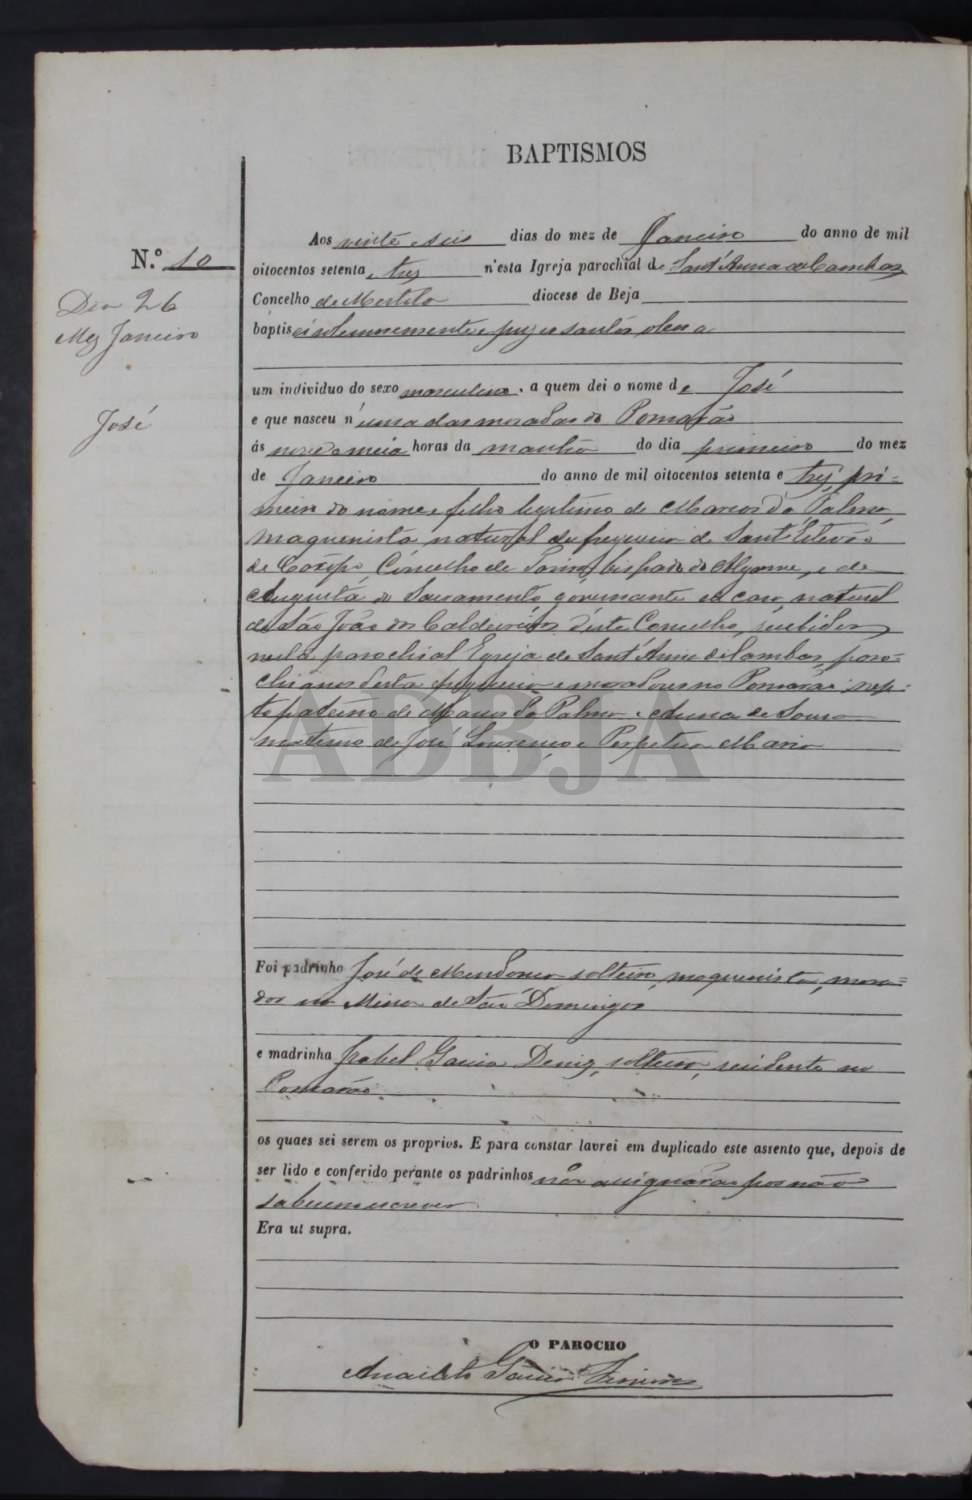 BAPTISMOS
N.º 10
Dia 26
Mez Janeiro
José
Aos vinte e seis dias do mez de Janeiro do anno de mil
oitocentos setenta e trez n'esta Igreja parochial de Sant'Anna de Cambas
Concelho de Mertola diocese de Beja
baptisei solemnemente e puz os santos oleos a
um individuo do sexo masculino, a quem dei o nome de José
e que nasceu n'uma das moradas do Pomarão
ás nove e meia horas da manhã do dia primeiro do mez
de Janeiro do anno de mil oitocentos setenta e trez, pri-
meiro do nome e filho legitimo de Marcos da Palma
maquenista natural da freguesia de Sant'Estevão
de Concelho de bispado do Algarve, e de
Augusta do Sacramento governante de casa natural
de São João dos Caldeireiros deste Concelho, recebidos
nesta parochial Egreja de Sant'Anna de Cambas, paro-
chianos desta freguesia e moradores no Pomarão nep-
to paterno de Marcos da Palma e Anna de Sousa
materno de José Lourenço e Perpetua Maria
ADBJA
Foi padrinho José de Mendonça solteiro, maquenista, mora-
dor na Mina de São Domingos
e madrinha Izabel Garcia Deniz, solteira, residente no
Pomarão
os quaes sei serem os proprios. E para constar lavrei em duplicado este assento que, depois de
ser lido e conferido perante os padrinhos não assignarão por não
saberem escrever
Era ut supra.
O PAROCHO
Garcia